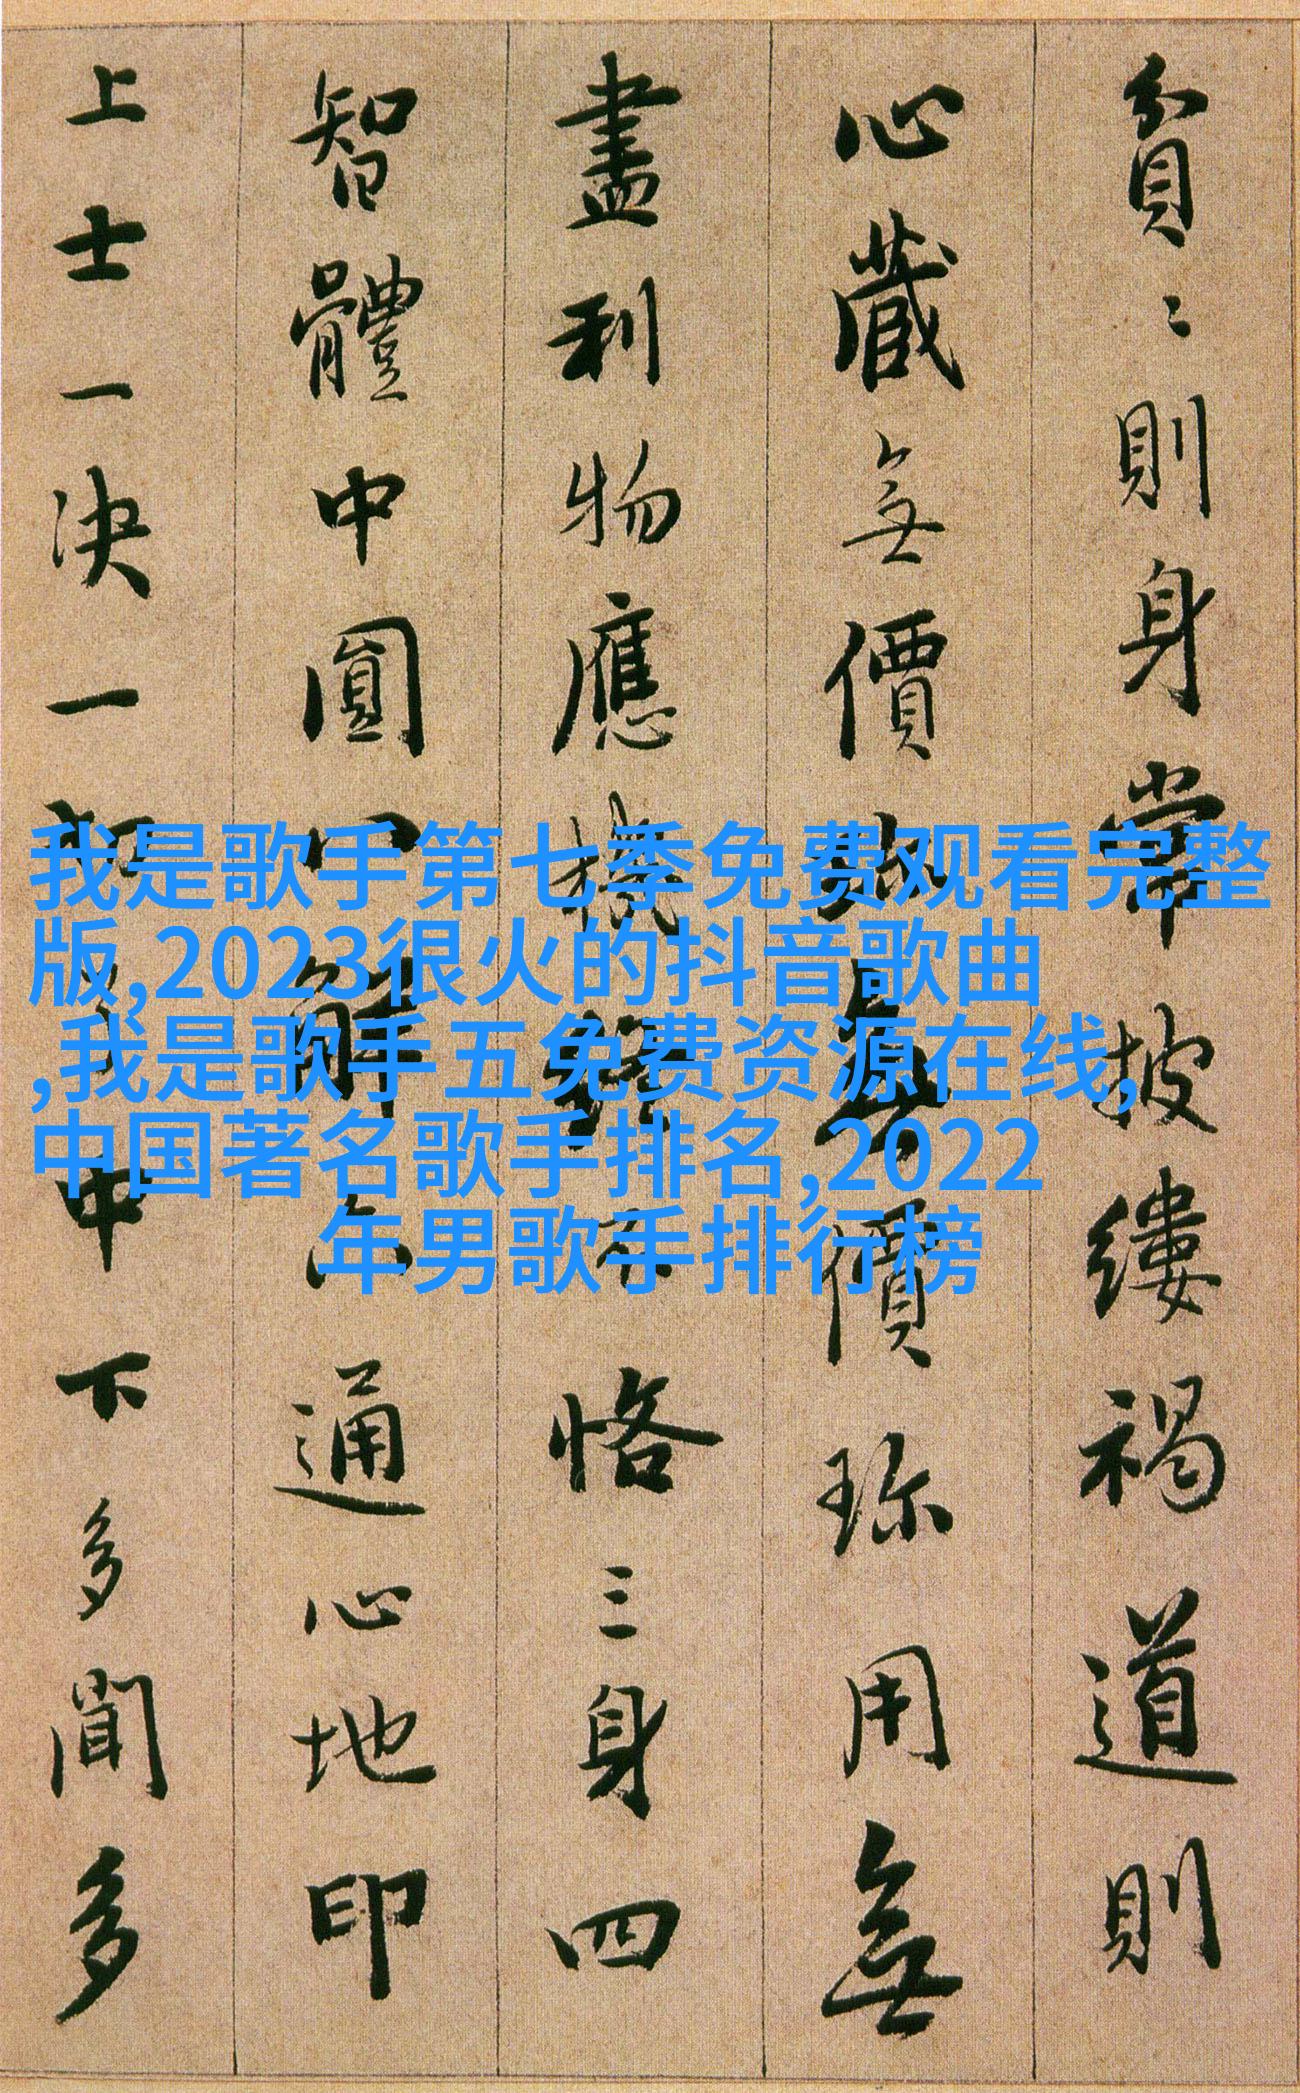 貧〻則身常披縷褐道則
心藏無價珎無價珎用無
盡利物應機終不恪三身四
智體中圓八解六通心地印
上士一決一切了中下多聞多
我是歌手第七季免费观看完整
版,2023很火的抖音歌曲
,我是歌手五免费资源在线,
中国著名歌手排名,2022
年男歌手排行榜